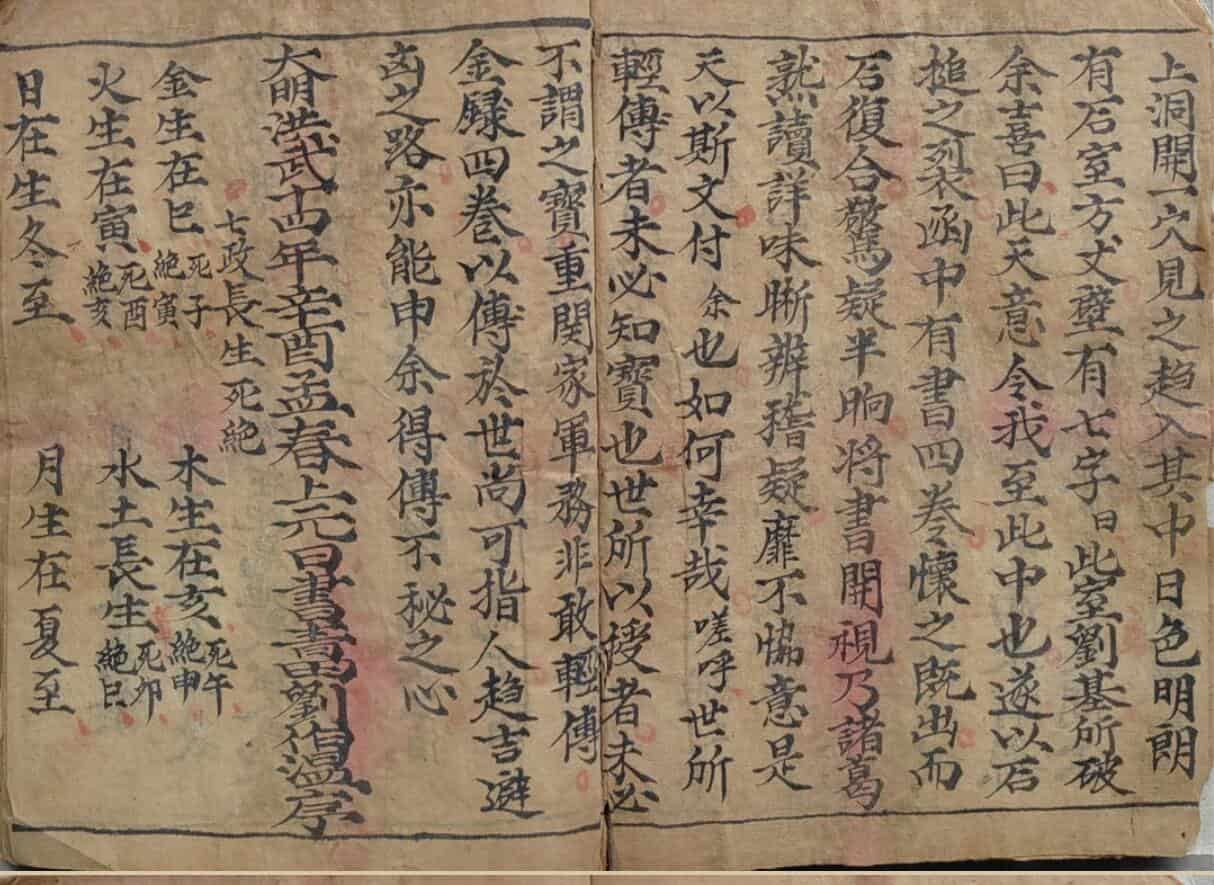 上洞開一穴見之趋入其中日色明朗
有石室方丈壁有七字曰此室劉基所破
余喜曰此天意令我至此中也遂以石
搥之烈衣函中有書四卷懷之既出而
石復合驚疑半晌将書開視乃諸葛
熟讀詳味晣辨稽疑靡不恊意是
天以斯文付余也如何幸哉嗟呼世所
輕傳者未必知寶也世所以授者未必
不謂之寶重関家軍務非敢輕傳
金録四卷以傳於世尚可指人趋吉避
凶之路亦能申余得傳不秘之心
大明洪武十四年辛酉孟春上元日書青田劉伯溫序
七政長生死絕
金生在巳 死子 絕寅
木生在亥 死午 絕申
火生在寅 死酉 絕亥
水土長生 死卯 絕巳
日在生冬至
月生在夏至